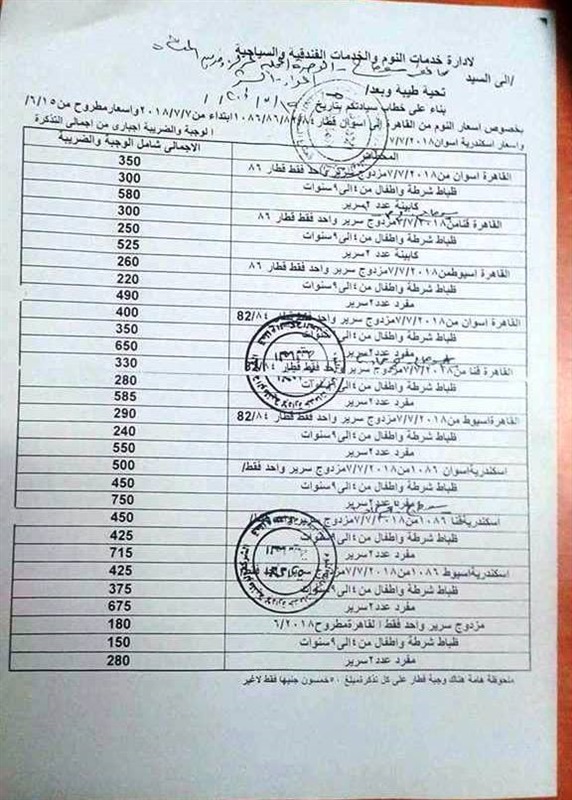 لادارة خدمات النوم والخدمات الفندقية والسياحية
/الى السيد
تحية طيبة وبعد/
بناء على خطاب سيادتكم بتاريخ
بخصوص اسعار النوم من القاهرة الى اسوان قطار ١٠٨٦/٨٦/٨٢/٨٤ ابتداء من ٢٠١٨/٧/٧ واسعار مطروح من ٦/١٥/
واسعار اسكندرية اسوان ٧/٧/٢٠١٨ الوجبة والضريبة اجبارى من اجمالى التذكرة
الاجمالى شامل الوجبة والضريبة
القاهرة اسوان من ٧/٧/٢٠١٨ مزدوج سرير واحد فقط قطار ٨٦ 350
ظباط شرطة واطفال من ٤ الى ٩ سنوات 300
كابينة عدد ٢ سرير 580
القاهرة قنا من ٧/٧/٢٠١٨ مزدوج سرير واحد فقط قطار ٨٦ 300
ظباط شرطة واطفال من ٤ الى ٩ سنوات 250
كابينة عدد ٢ سرير 525
القاهرة اسيوط من ٧/٧/٢٠١٨ مزدوج سرير واحد فقط قطار ٨٦ 260
ظباط شرطة واطفال من ٤ الى ٩ سنوات 220
مفرد عدد ٢ سرير 490
القاهرة اسوان من ٧/٧/٢٠١٨ مزدوج سرير واحد فقط قطار 82/٨٤ 400
ظباط شرطة واطفال من ٤ الى ٩ سنوات 350
مفرد عدد ٢ سرير 650
القاهرة قنا من ٧/٧/٢٠١٨ مزدوج سرير واحد فقط قطار 82/٨٤ 330
ظباط شرطة واطفال من ٤ الى ٩ سنوات 280
مفرد عدد ٢ سرير 585
القاهرة اسيوط من ٧/٧/٢٠١٨ مزدوج سرير واحد فقط قطار 82/٨٤ 290
ظباط شرطة واطفال من ٤ الى ٩ سنوات 240
مفرد عدد ٢ سرير 550
اسكندرية اسوان ١٠٨٦ من ٧/٧/٢٠١٨ مزدوج سرير واحد فقط/ 500
ظباط شرطة واطفال من ٤ الى ٩ سنوات 450
مفرد عدد ٢ سرير 750
اسكندرية قنا ١٠٨٦ من ٧/٧/٢٠١٨ مزدوج سرير واحد فقط/ 450
ظباط شرطة واطفال من ٤ الى ٩ سنوات 425
مفرد عدد ٢ سرير 715
اسكندرية اسيوط ١٠٨٦ من ٧/٧/٢٠١٨ مزدوج سرير واحد فقط 425
ظباط شرطة واطفال من ٤ الى ٩ سنوات 375
مفرد عدد ٢ سرير 675
مزدوج سرير واحد فقط القاهرة مطروح ٦/٢٠١٨ 180
ظباط شرطة واطفال من ٤ الى ٩ سنوات 150
مفرد عدد ٢ سرير 280
ملحوظة هامة هناك وجبة قطار على كل تذكرة بمبلغ ٥٠ خمسون جنيها فقط لاغير